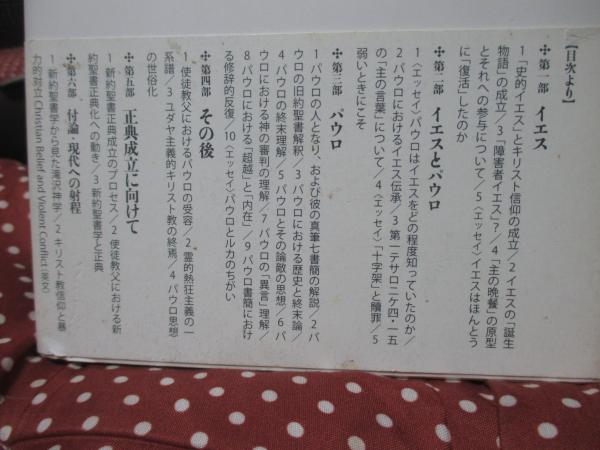 【目次より】
✣第一部　イエス
1「史的イエス」とキリスト信仰の成立／2 イエスの「誕生
物語」の成立／3「障害者イエス」?／4「主の晩餐」の原型
とそれへの参与について／5〈エッセイ〉イエスはほんとう
に「復活」したのか
✣第二部　イエスとパウロ
1〈エッセイ〉パウロはイエスをどの程度知っていたのか／
2 パウロにおけるイエス伝承／3 第一テサロニケ四・一五
の「主の言葉」について／4〈エッセイ〉「十字架」と贖罪／5
弱いときにこそ
✣第三部　パウロ
1 パウロの人となり、および彼の真筆七書簡の解説／2 パ
ウロの旧約聖書解釈／3 パウロにおける歴史と終末論／
4 パウロの終末理解／5 パウロとその論敵の思想／6 パ
ウロにおける神の審判の理解／7 パウロの「異言」理解／
8 パウロにおける「超越」と「内在」／9 パウロ書簡におけ
る修辞的反復／10〈エッセイ〉パウロとルカのちがい
✣第四部　その後
1 使徒教父におけるパウロの受容／2 霊的熱狂主義の一
系譜／3 ユダヤ主義的キリスト教の終焉／4 パウロ思想
の世俗化
✣第五部　正典成立に向けて
1 新約聖書正典成立のプロセス／2 使徒教父における新
約聖書正典化への動き／3 新約聖書学と正典
✣第六部　付論・現代への射程
1 新約聖書学から見た滝沢神学／2 キリスト教信仰と暴
力的対立 Christian Belief and Violent Conflict（英文）